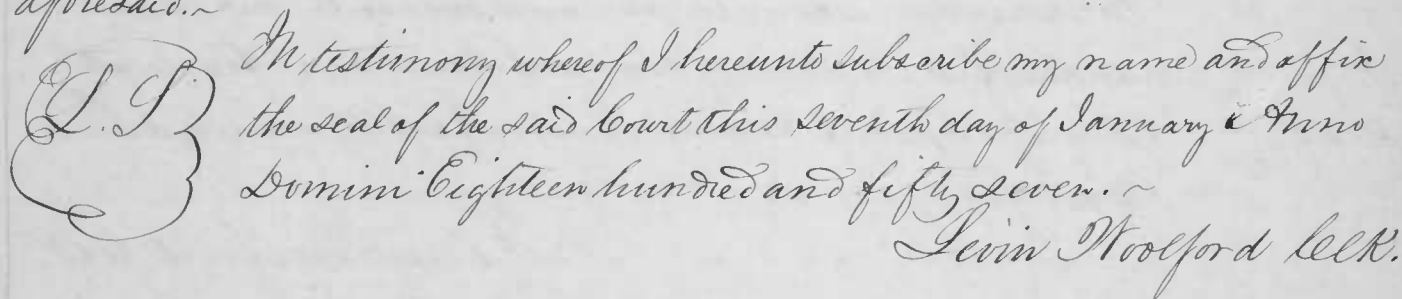 aforesaid.~
In testimony whereof I hereunto subscribe my name and affix
L. S. the seal of the said Court this seventh day of January Anno
Domini Eighteen hundred and fifty seven. ~
Levin Woolford Clk.